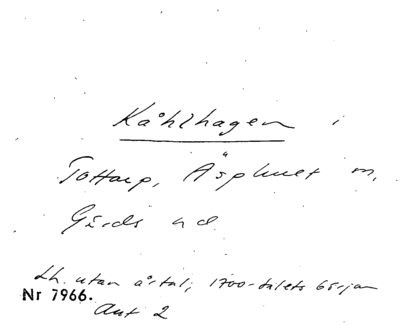 Kåhlhagen i
Tottarp, Äsphult m,
Gärds hd
Lh. utan årtal; 1700-talets början
Nr 7966.
Avt 2